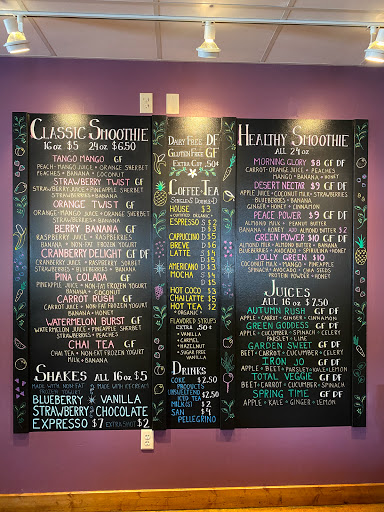 CLASSIC SMOOTHIE
16 oz $5 24 oz $6.50
TANGO MANGO GF
PEACH-MANGO JUICE + ORANGE SHERBET
PEACHES + BANANA + COCONUT
STRAWBERRY TWIST GF
STRAWBERRY JUICE + PINEAPPLE SHERBET
STRAWBERRIES + BANANA
ORANGE TWIST GF
ORANGE-MANGO JUICE + ORANGE SHERBET
STRAWBERRIES + BANANA
BERRY BANANA GF
RASPBERRY JUICE + BERRIES
BANANA + NON-FAT FROZEN YOGURT
CRANBERRY DELIGHT GF
CRANBERRY JUICE + RASPBERRY SHERBET
STRAWBERRIES + BLUEBERRIES + BANANA
PINA COLADA GF
PINEAPPLE JUICE + NON-FAT FROZEN
YOGURT + BANANA + COCONUT
CARROT RUSH GF
CARROT JUICE + NON-FAT FROZEN YOGURT
BANANA + HONEY
WATERMELON BURST GF
WATERMELON JUICE + PINEAPPLE SHERBET
STRAWBERRIES + PEACHES
CHAI TEA GF
CHAI TEA + NON-FAT FROZEN YOGURT
MILK + BANANA
SHAKES ALL 16 oz $5
MADE WITH NON-FAT FROZEN YOGURT OR MADE WITH ICE CREAM
BLUEBERRY VANILLA
STRAWBERRY CHOCOLATE
EXPRESSO $7 EXTRA SHOT $2
DAIRY FREE DF
GLUTEN FREE GF
EXTRA CUP .50¢
COFFEE + TEA
HOUSE $3
ESPRESSO $3
CAPPUCCINO $5
BREVE $5
LATTE $4
$5
AMERICANO $3
MOCHA $4
$5
HOT COCO $3
CHAI LATTE $5
HOT TEA $2
ORGANIC
FLAVORED SYRUPS
EXTRA .50¢
VANILLA
CARMEL
HAZELNUT
SUGAR FREE
VANILLA
DRINKS
COKE $2.50
PRODUCTS
ICED TEA $2.50
MILK $2
SAN $4
PELLEGRINO
HEALTHY SMOOTHIE
ALL 24 oz
MORNING GLORY $8 GF DF
CARROT-ORANGE JUICE + PEACHES
MANGO + BANANA + HONEY
DESERT NECTAR $9 GF DF
APPLE JUICE + COCONUT MILK + STRAWBERRIES
BLUEBERRIES + BANANA
GINGER + HONEY + CINNAMON
PEACE POWER $9 GF DF
ALMOND MILK + PEANUT BUTTER
BANANA + HONEY ADD ALMOND BUTTER $2
GREEN POWER $10 GF DF
ALMOND MILK + ALMOND BUTTER + BANANA
BLUEBERRIES + AVOCADO + SPINACH + HONEY
JOLLY GREEN $10
COCONUT MILK + MANGO + PINEAPPLE
SPINACH + AVOCADO + CHIA SEEDS
PROTEIN POWDER + HONEY
JUICES
ALL 16 oz $7.50
AUTUMN RUSH GF DF
APPLE + CARROT + GINGER + CINNAMON
GREEN GODDESS GF DF
APPLE + CUCUMBER + SPINACH + CELERY
PARSLEY + LIME
GARDEN SWEET GF DF
BEET + CARROT + CUCUMBER + CELERY
IRON JO GF DF
APPLE + BEET + PARSLEY + KALE + LEMON
TOTAL VEGGIE GF DF
BEET + CARROT + CUCUMBER + SPINACH
SPRING TIME GF DF
APPLE + KALE + GINGER + LEMON